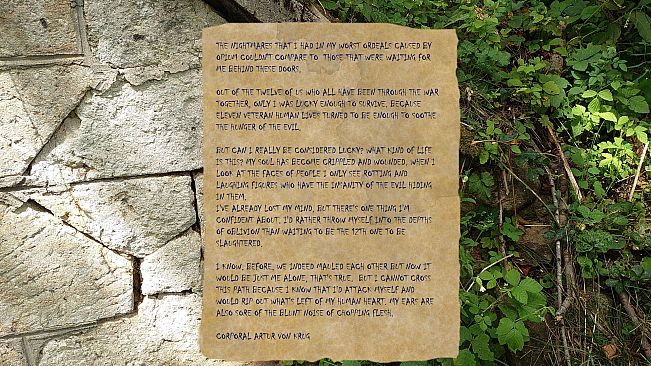 THE NIGHTMARES THAT I HAD IN MY WORST ORDEALS CAUSED BY
OPIUM COULDN'T COMPARE TO THOSE THAT WERE WAITING FOR
ME BEHIND THESE DOORS.
OUT OF THE TWELVE OF US WHO ALL HAVE BEEN THROUGH THE WAR
TOGETHER, ONLY I WAS LUCKY ENOUGH TO SURVIVE, BECAUSE
ELEVEN VETERAN HUMAN LIVES TURNED TO BE ENOUGH TO SOOTHE
THE HUNGER OF THE EVIL.
BUT CAN I REALLY BE CONSIDERED LUCKY? WHAT KIND OF LIFE
IS THIS? MY SOUL HAS BECOME CRIPPLED AND WOUNDED, WHEN I
LOOK AT THE FACES OF PEOPLE I ONLY SEE ROTTING AND
LAUGHING FIGURES WHO HAVE THE INSANITY OF THE EVIL HIDING
IN THEM.
I'VE ALREADY LOST MY MIND, BUT THERE'S ONE THING I'M
CONFIDENT ABOUT, I'D RATHER THROW MYSELF INTO THE DEPTHS
OF OBLIVION THAN WAITING TO BE THE 12TH ONE TO BE
SLAUGHTERED.
I KNOW, BEFORE, WE INDEED MAULED EACH OTHER BUT NOW IT
WOULD BE JUST ME ALONE, THAT'S TRUE, BUT I CANNOT CROSS
THIS PATH BECAUSE I KNOW THAT I'D ATTACK MYSELF AND
WOULD RIP OUT WHAT'S LEFT OF MY HUMAN HEART. MY EARS ARE
ALSO SORE OF THE BLUNT NOISE OF CHOPPING FLESH.
CORPORAL ARTUR VON KRUG